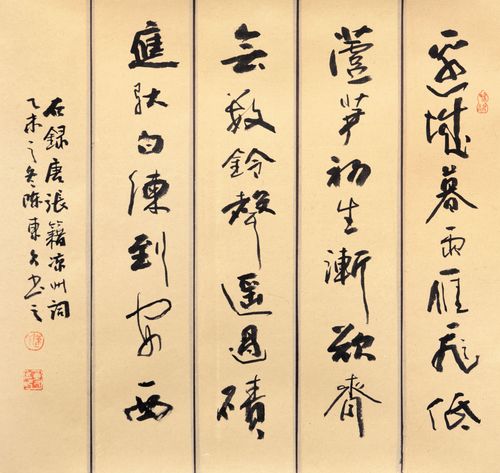 邊城暮雨雁飛低
蘆笋初生漸欲齊
無數鈴聲遥過磧
應馱白練到安西
右録唐張籍凉州詞
乙未之冬陳東書之